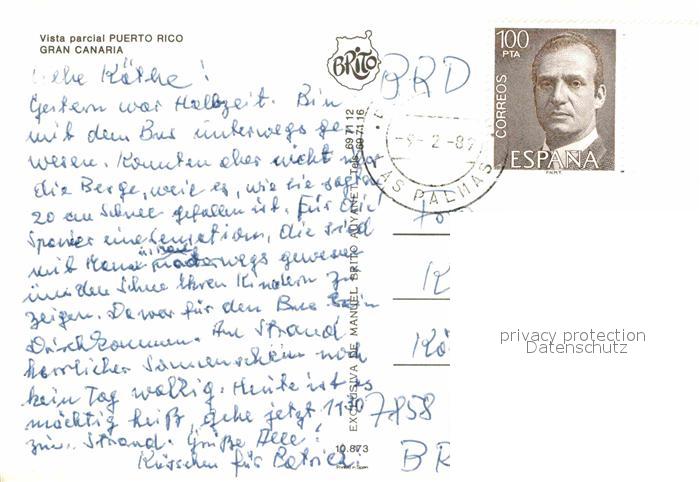 Vista parcial PUERTO RICO
GRAN CANARIA
Liebe Käthe!
Gestern war Halbzeit. Bin
mit dem Bus unterwegs ge
wesen. Konnten aber nicht
die Berge, weil es, wie sie sagten
20 cm Schnee gefallen ist. Für die
Spanier eine Sensation, die sind
mit unterwegs gewesen
um den Schnee ihren Kindern zu
zeigen. Da war für den Bus kein
Durchkommen. Am Strand
herrlicher Sonnenschein noch
kein Tag wolkig. Heute ist es
mächtig heiß, gehe jetzt 11.30
zum Strand. Grüße Alle!
Küsschen für Patrick.
BRITO
EXCLUSIVA DE MANUEL BRITO AUYANET. Tels.
69 71 12
69 71 16
10.873
Printed in Spain
BRD
-9-2-89
LAS PALMAS
100
PTA
CORREOS
ESPAÑA
F.N.M.T.
K
Kö
7858
BR
privacy protection
Datenschutz